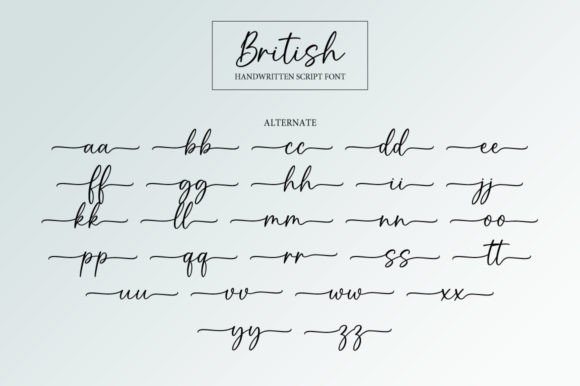 British
HANDWRITTEN SCRIPT FONT
ALTERNATE
aa bb cc dd ee
ff gg hh ii jj
kk ll mm nn oo
pp qq rr ss tt
uu vv ww xx
yy zz